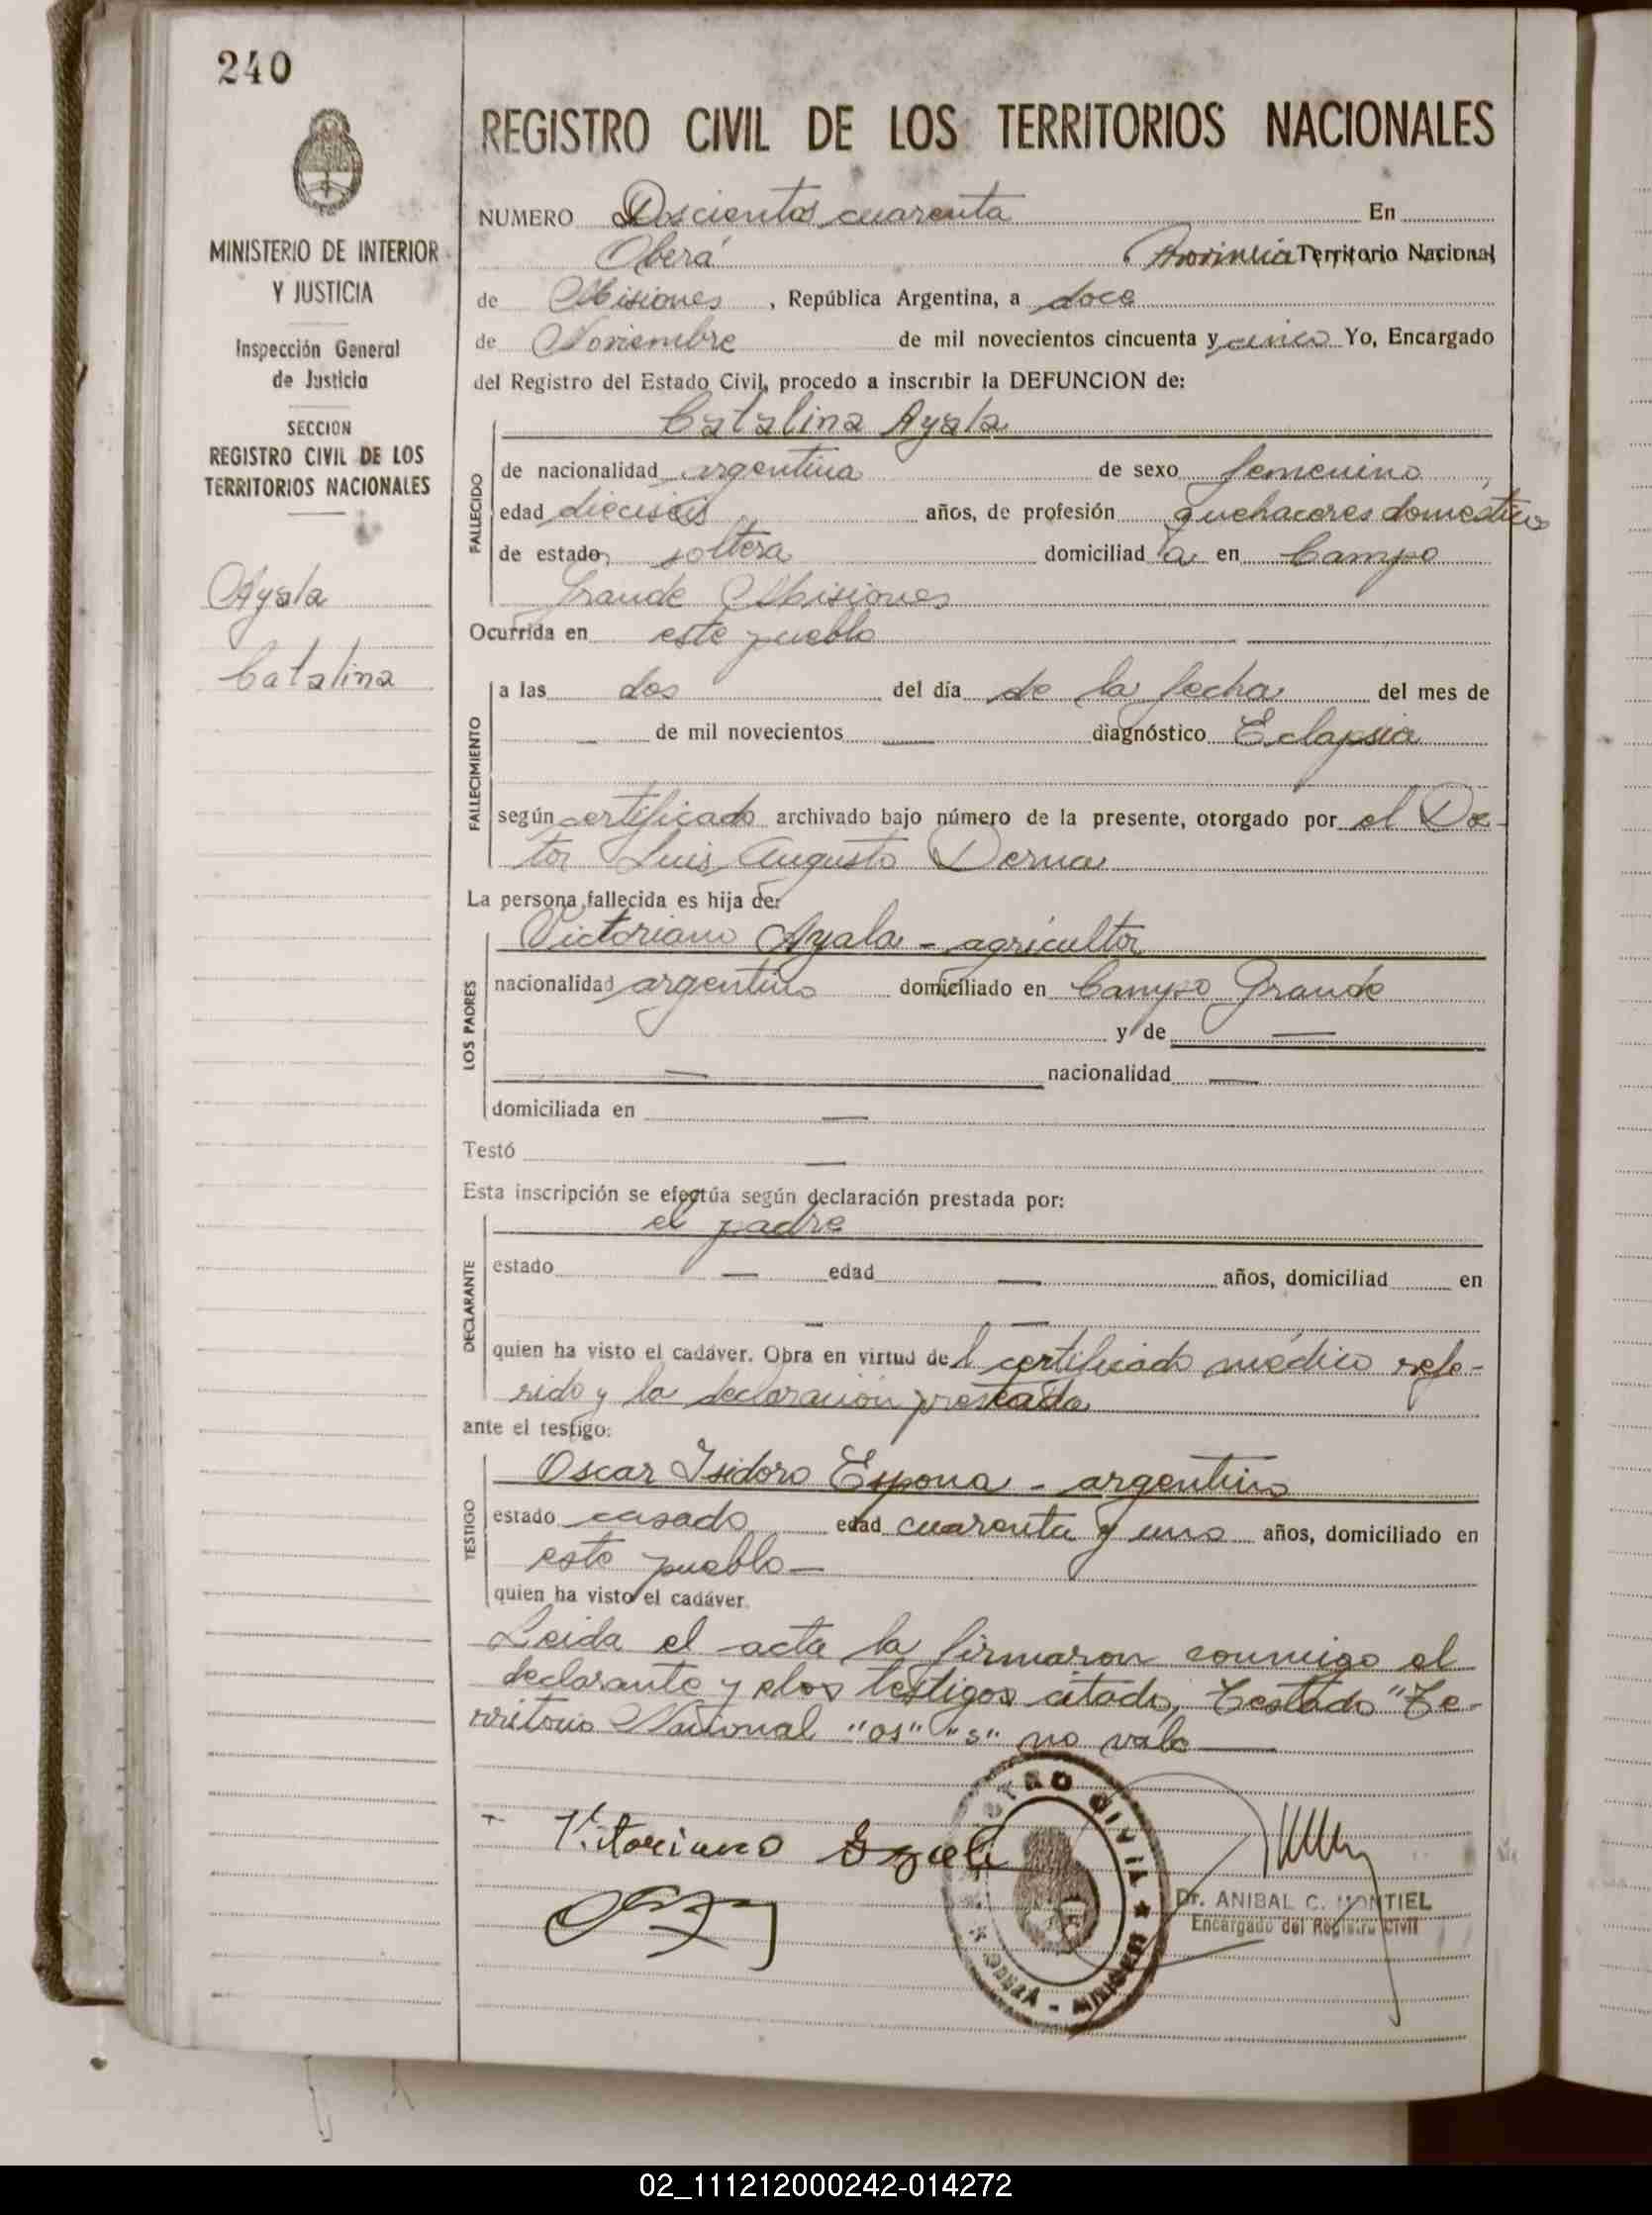 240
REGISTRO CIVIL DE LOS TERRITORIOS NACIONALES
MINISTERIO DE INTERIOR
Y JUSTICIA
Inspección General
de Justicia
SECCION
REGISTRO CIVIL DE LOS
TERRITORIOS NACIONALES
Ayala
Catalina
NUMERO Doscientos cuarenta En
Oberá Provincia Territorio Nacional
de Misiones, República Argentina, a doce
de Noviembre de mil novecientos cincuenta y cinco Yo, Encargado
del Registro del Estado Civil, procedo a inscribir la DEFUNCION de:
FALLECIDO
Catalina Ayala
de nacionalidad argentina de sexo femenino,
edad dieciseis años, de profesión quehaceres domésticos
de estado soltera domiciliad a en Campo
Grande Misiones
Ocurrida en este pueblo
FALLECIMIENTO
a las dos del día de la fecha del mes de
— de mil novecientos — diagnóstico Eclapsia
según certificado archivado bajo número de la presente, otorgado por el Doc-
tor Luis Augusto Derna
La persona fallecida es hija de:
LOS PADRES
Victoriano Ayala - agricultor
nacionalidad argentino domiciliado en Campo Grande
y de —
— nacionalidad —
domiciliada en —
Testó —
Esta inscripción se efectúa según declaración prestada por:
DECLARANTE
el padre
estado — edad — años, domiciliad en
— —
quien ha visto el cadáver. Obra en virtud del certificado médico refe-
rido y la declaración prestada
ante el testigo:
TESTIGO
Oscar Isidoro Espona - argentino
estado casado edad cuarenta y uno años, domiciliado en
este pueblo —
quien ha visto el cadáver.
Leida el acta la firmaron conmigo el
declarante y elos testigos citados, Testado "Te-
rritorio Nacional "os" "s" no vale —
Vitoriano Ayala
REGISTRO CIVIL ★ MISIONES - OBERÁ ★
Dr. ANIBAL C. MONTIEL
Encargado del Registro Civil
02_111212000242-014272